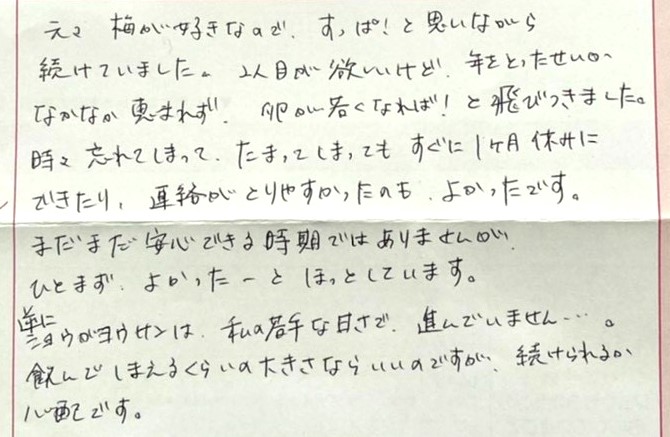 元々 梅が好きなので、すっぱ!と思いながら
続けていました。2人目が欲しいけど、年をとったせいか
なかなか恵まれず、卵が若くなれば!と飛びつきました。
時々忘れてしまって、たまってしまっても すぐに1ヶ月休みに
できたり、連絡がとりやすかったのも、よかったです。
まだまだ安心できる時期ではありませんが、
ひとまず、よかったーと ほっとしています。
逆に
ヨウサンは、私の苦手な甘さで、進んでいません…。
飲んでしまえるくらいの大きさならいいのですが、続けられるか
心配です。